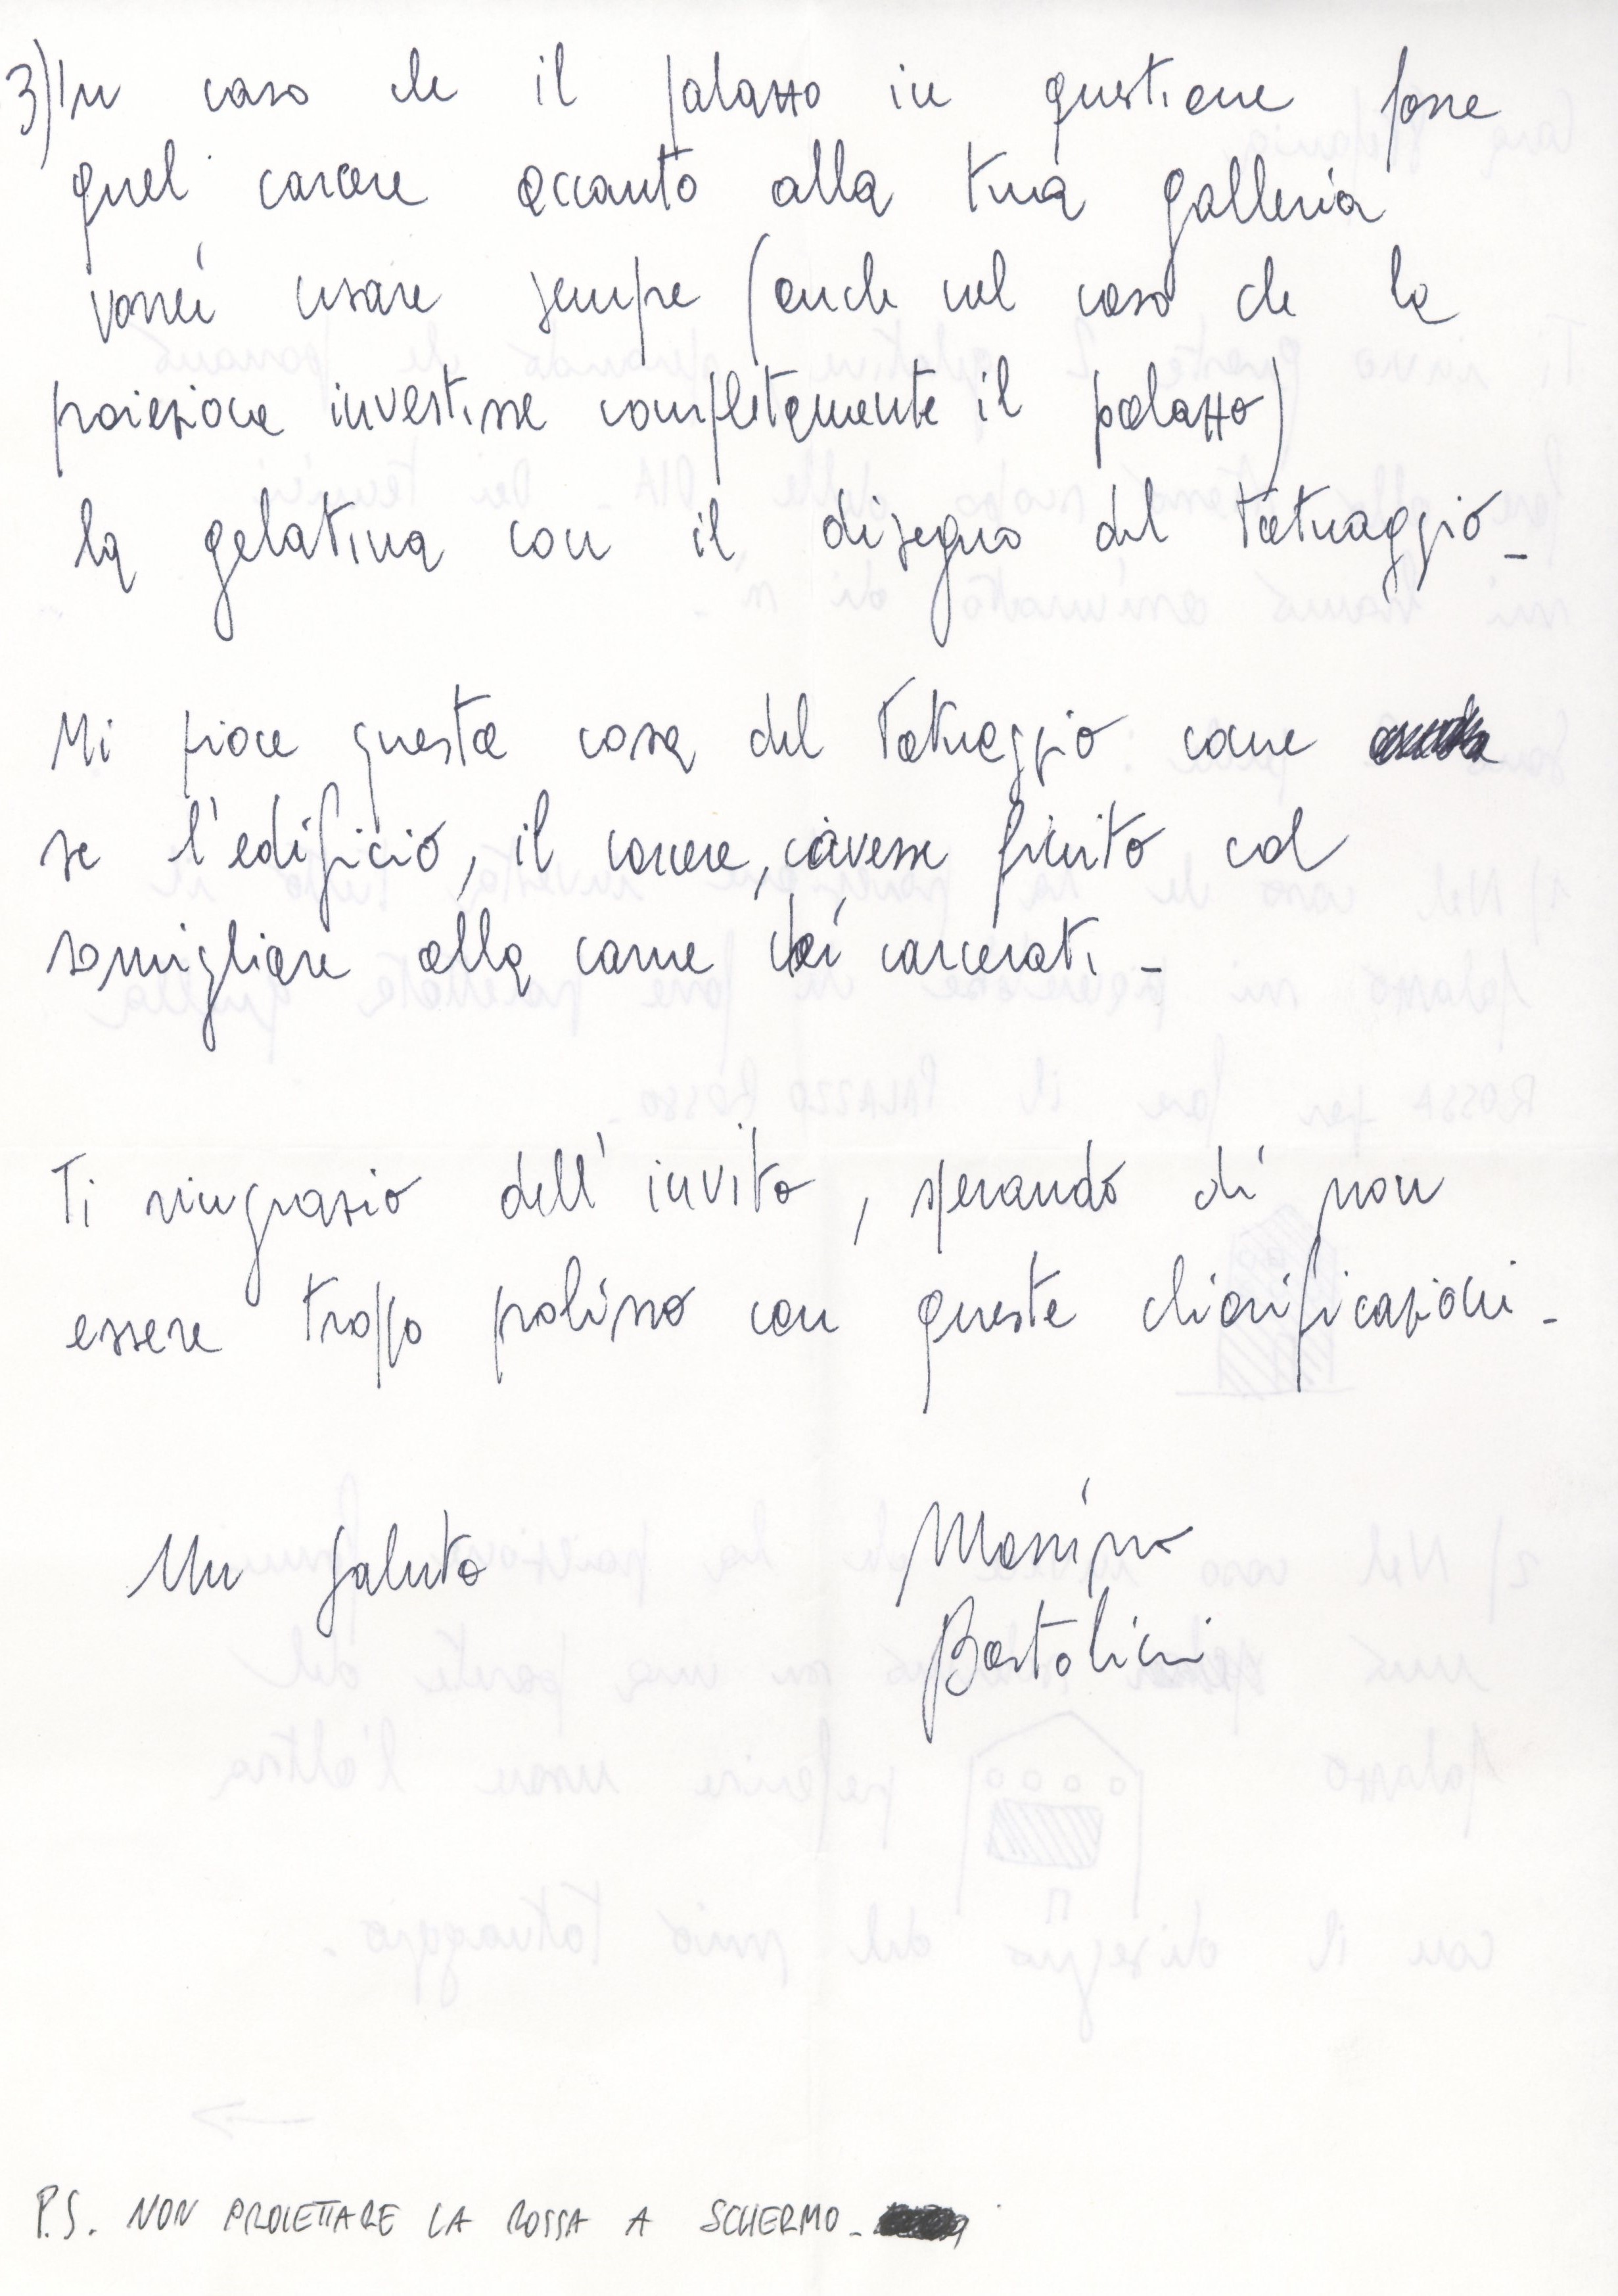 3) In caso che il palazzo in questione fosse
quel carcere accanto alla tua galleria
vorrei usare sempre (anche nel caso che la
proiezione investisse completamente il palazzo)
la gelatina con il disegno del tatuaggio -
Mi piace questa cosa del tatuaggio come
se l'edificio, il carcere, avesse finito col
somigliare alla carne dei carcerati -
Ti ringrazio dell'invito, sperando di non
essere troppo prolisso con queste chiarificazioni -
Un saluto Massimo
Bartolini
P.S. NON PROIETTARE LA ROSSA A SCHERMO -